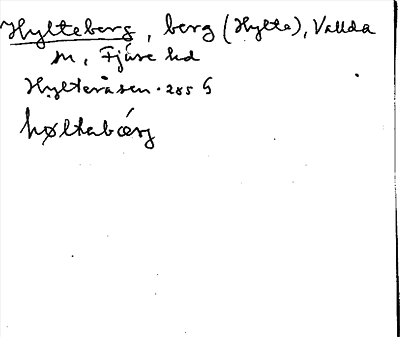 Hylteberg, berg (Hylte), Vallda
sn, Fjäre hd
Hylteråsen. 285 G
høltabærj